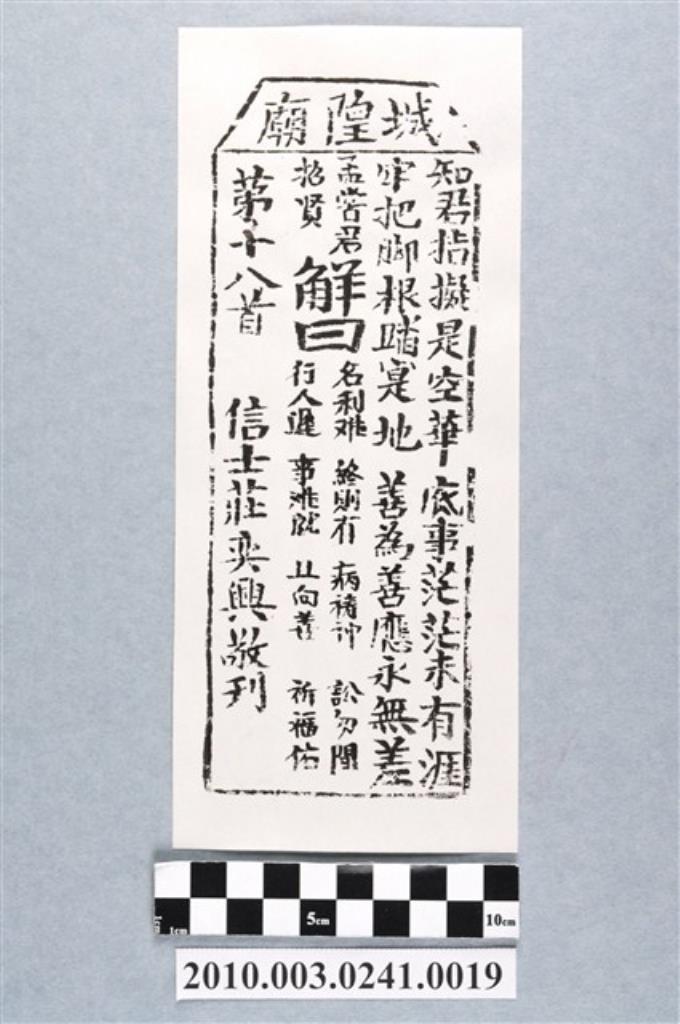 城隍廟
知君指擬是空華 底事茫茫未有涯
牢把脚根踏寔地 善為善應永無差
孟嘗君
招贤
解曰
名利难 終則有 病禱神 訟勿聞
行人遲 事难就 且向善 祈福佑
第十八首 信士莊奕興敬刋
5cm
10cm
1cm
2010.003.0241.0019